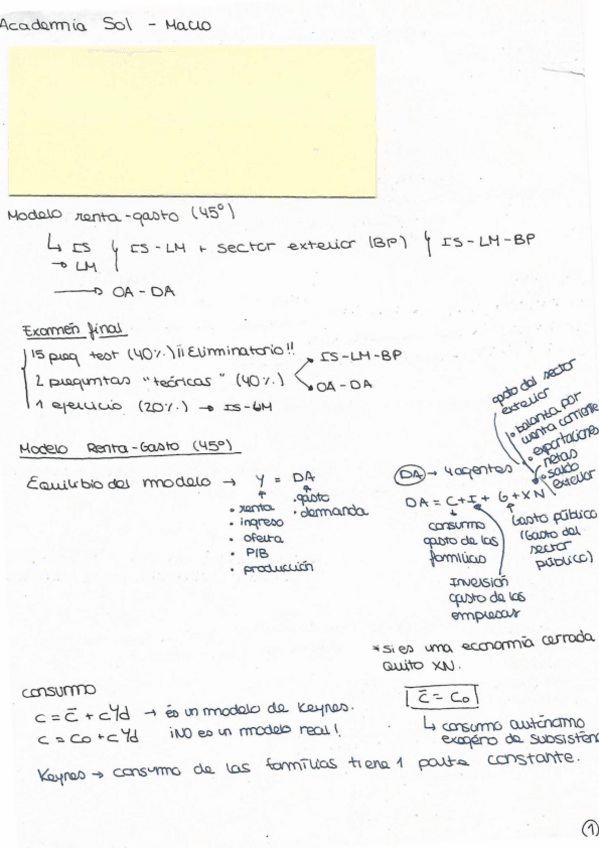 Academia Sol - Macro
Modelo renta-gasto (45º)
↳ IS } IS-LM + sector exterior (BP) } IS-LM-BP
→ LM
→ OA-DA
Examen final
15 preg test (40%) ¡¡Eliminatorio!!
2 preguntas "teóricas" (40%) IS-LM-BP
OA-DA
1 ejercicio (20%) → IS-LM
Modelo Renta-Gasto (45º)
Equilibio del modelo → Y = DA
• renta
• ingreso
• oferta
• PIB
• producción
• gasto
• demanda
DA → 4 agentes
DA = C+I+G+XN
consumo
gasto de las
familias
Inversión
gasto de las
empresas
Gasto público
(Gasto del
sector
público)
gasto del sector
exterior
• balanza por
cuenta corriente
• exportaciones
netas
• saldo
exterior
*si es una economía cerrada
quito XN.
consumo
C = C̄ + cYd → es un modelo de Keynes.
C = Co + cYd ¡NO es un modelo real!
C̄ = Co
↳ consumo autónomo
exogéno de subsistén
Keynes → consumo de las familias tiene 1 parte constante.
1